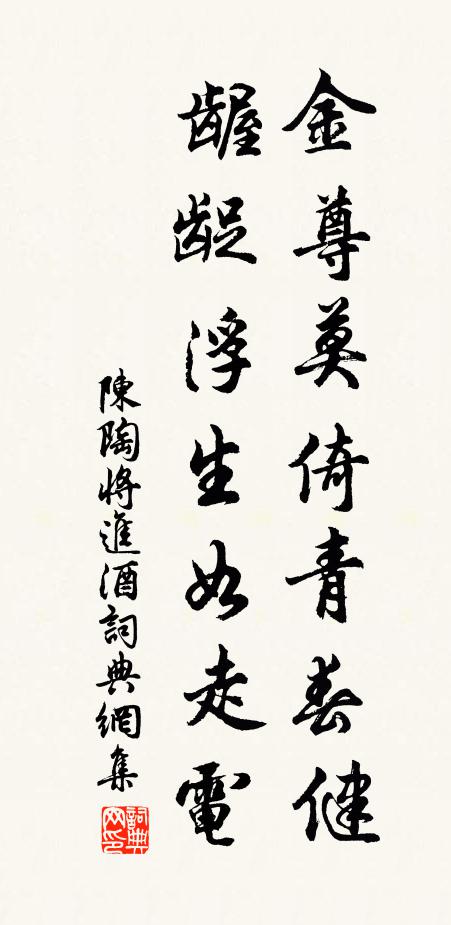 金尊莫倚青春健
齷齪浮生如走電
陳陶將進酒詞典網集
詞典网印